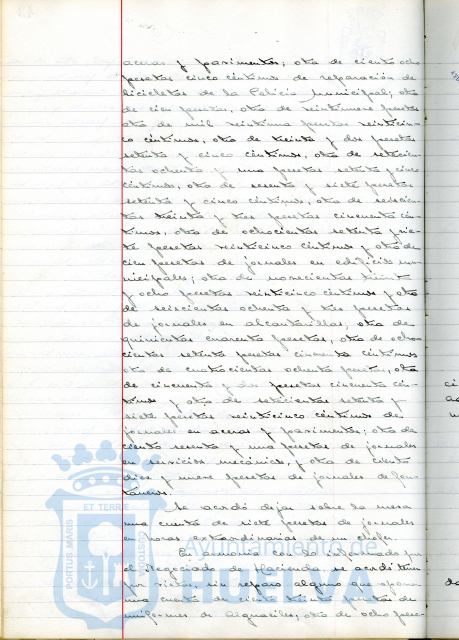 aceras y pavimentos; otra de ciento ocho
pesetas cinco céntimos de reparación de
bicicletas de la Policía Municipal; otra
de cien pesetas, otra de veintinueve pesetas
otra de mil veintiuna pesetas veinticin-
co céntimos, otra de treinta y dos pesetas
setenta y cinco céntimos, otra de setecien-
tas ochenta y una pesetas setenta y cinco
céntimos, otra de sesenta y siete pesetas
setenta y cinco céntimos, otra de seiscien-
tas treinta y tres pesetas cincuenta cén-
timos, otra de ochocientas setenta y sie-
te pesetas veinticinco céntimos y otra de
cien pesetas de jornales en edificios mu-
nicipales; otra de novecientas treinta
y ocho pesetas veinticinco céntimos y otra
de seiscientas ochenta y tres pesetas
de jornales en alcantarillas; otra de
quinientas cuarenta pesetas, otra de ocho-
cientas setenta pesetas cincuenta céntimos
otra de cuatrocientas ochenta pesetas, otra
de cincuenta y dos pesetas cincuenta cén-
timos y otra de setecientas setenta y
siete pesetas veinticinco céntimos de
jornales en aceras y pavimentos; otra de
ciento sesenta y una pesetas de jornales
en servicios mecánicos, y otra de ciento
diez y nueve pesetas de jornales de fon-
taneros.
Se acordó dejar sobre la mesa
una cuenta de siete pesetas de jornales
en horas extraordinarias de un chofer.
En armonía con lo informado por
el Negociado de Hacienda, se acordó
sin reparo alguno que oponer
una cuenta de ciento treinta pesetas de
uniformes de alguaciles; otra de ocho pese-
PORTUS MARIS ET TERRE CUSTODIA
Ayuntamiento de
HUELVA